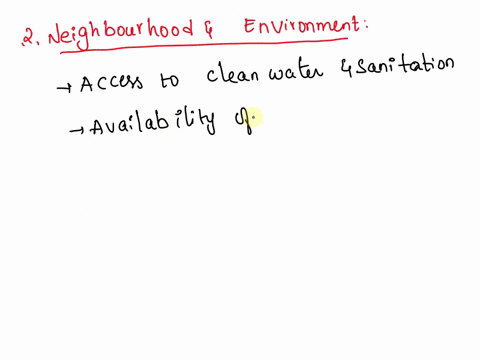 2. Neighbourhood & Environment:
→ Access to clean water & Sanitation
→ Availability of